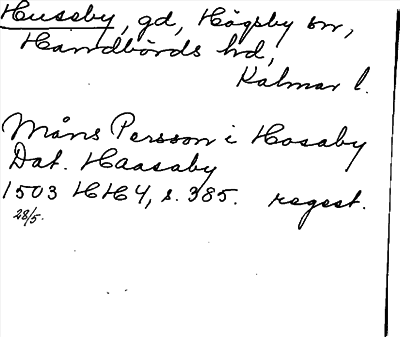 Hussby, gd, Högsby sn,
Handbörds hd,
Kalmar l.
Måns Persson i Hosaby
Dat. Haasaby
1503 HH4, s. 385. regest.
28/5.